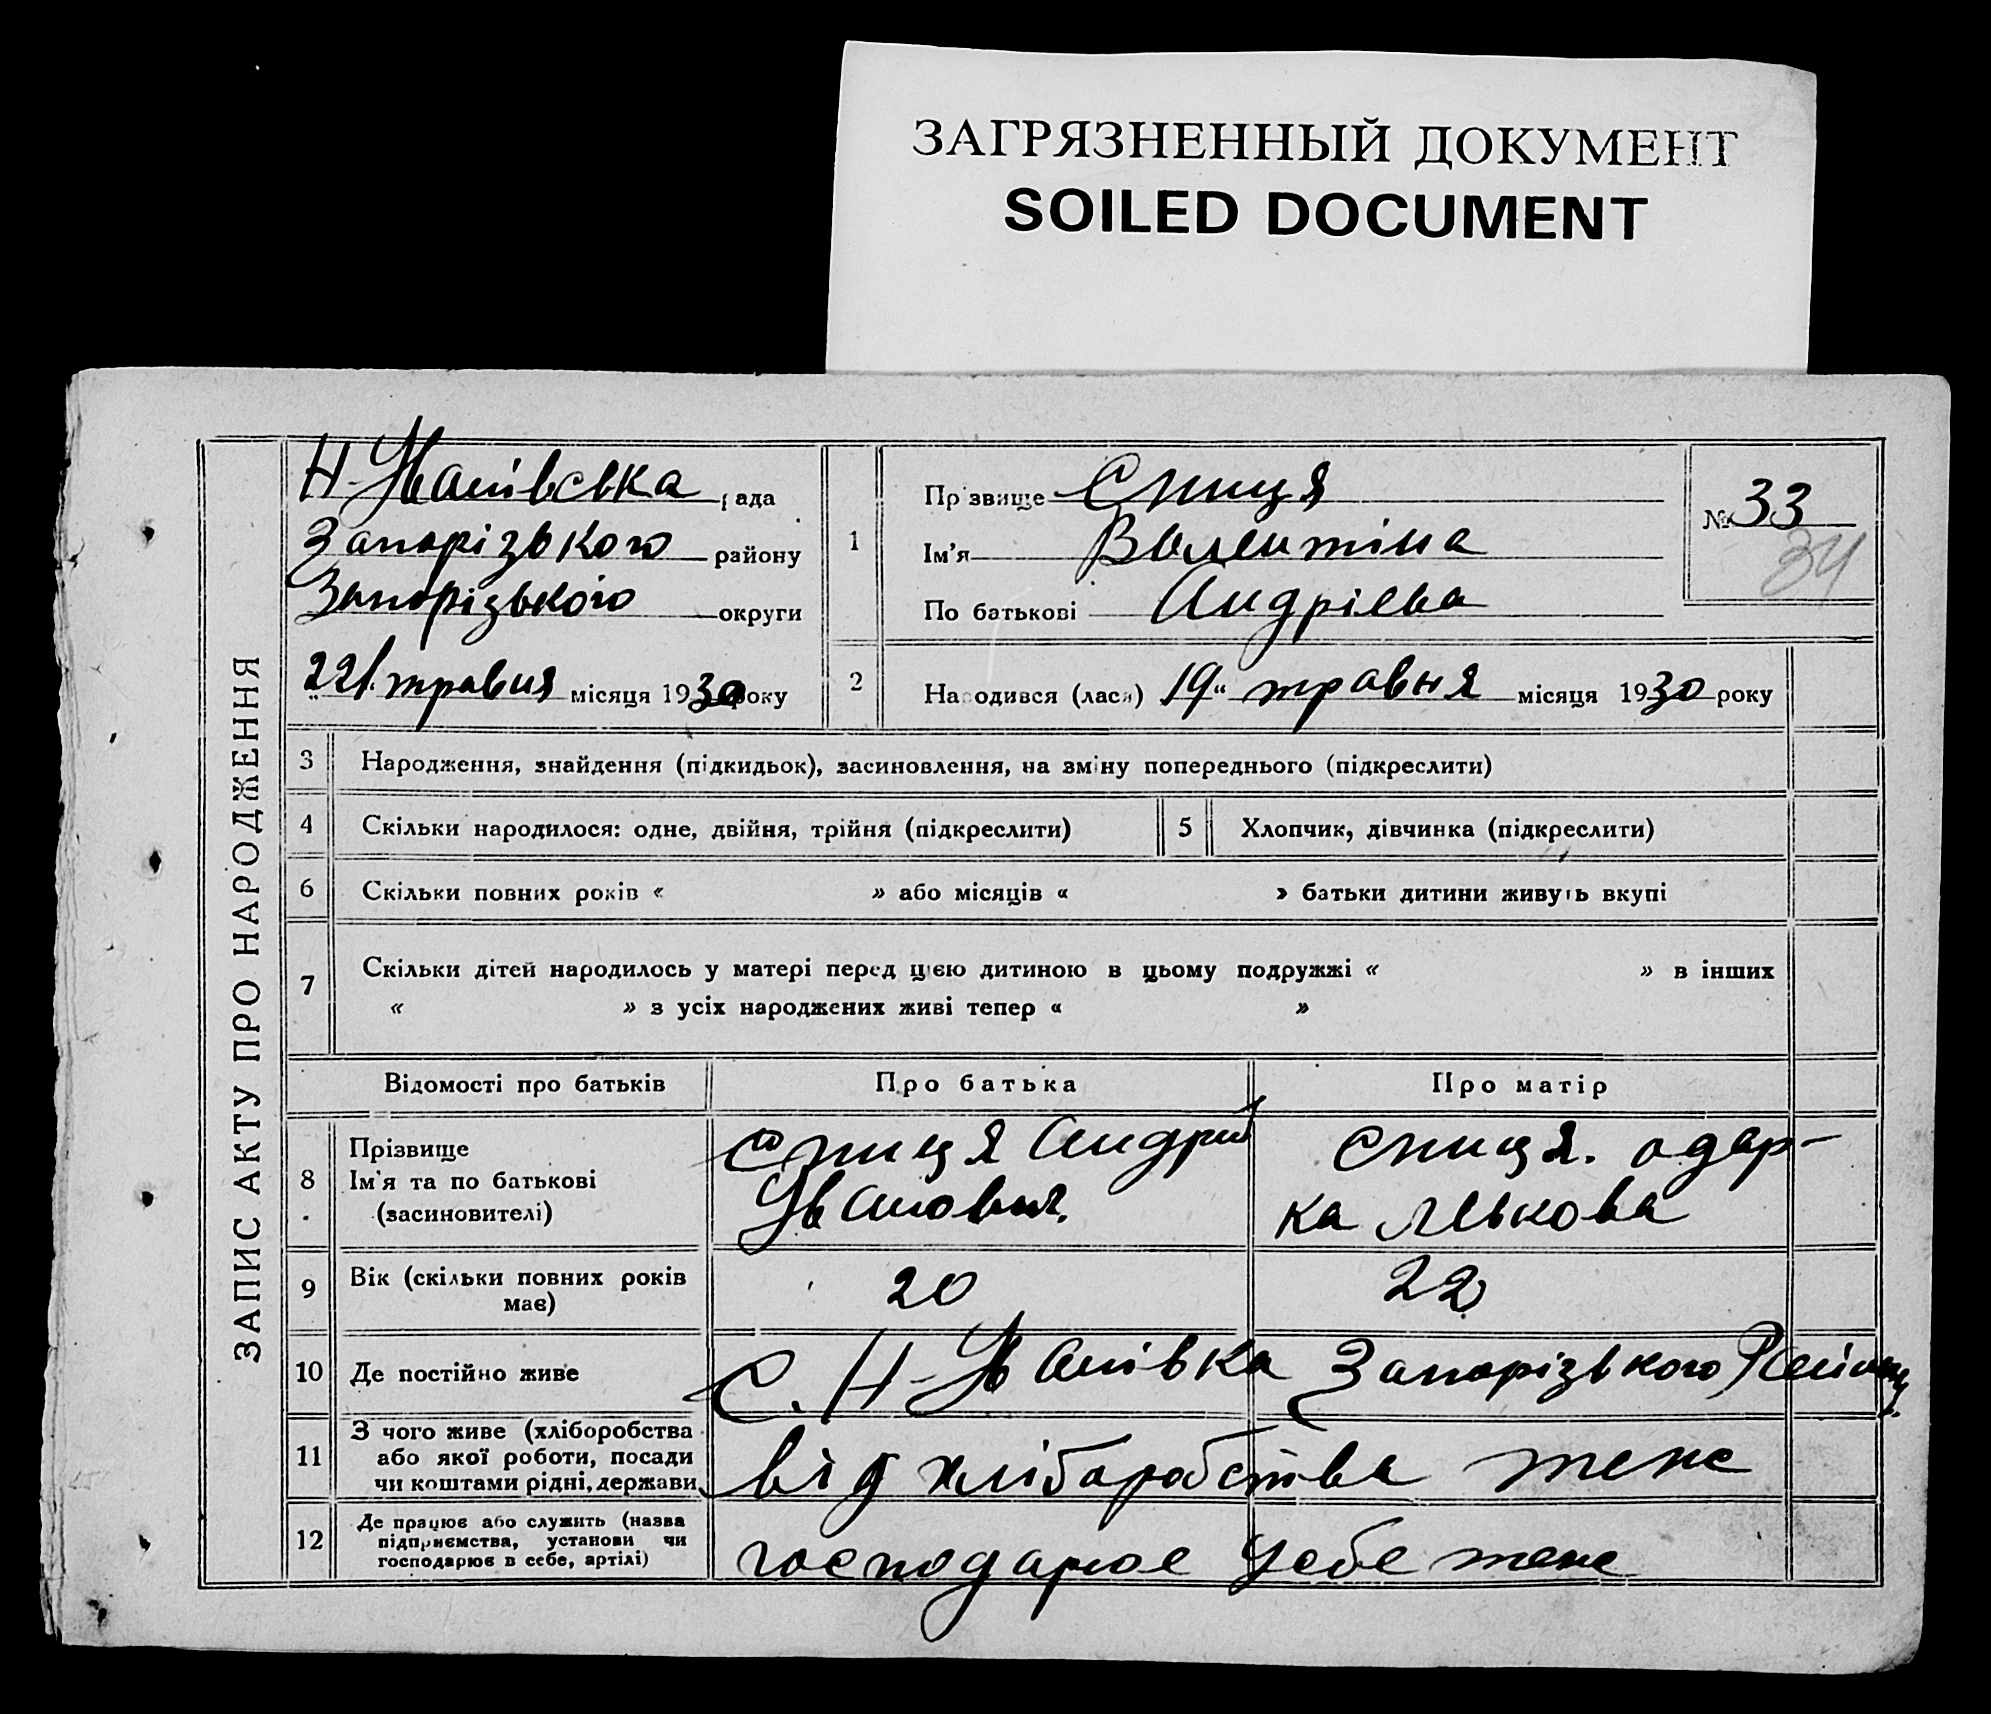 ЗАГРЯЗНЕННЫЙ ДОКУМЕНТ
SOILED DOCUMENT
ЗАПИС АКТУ ПРО НАРОДЖЕННЯ
Н-Іванівська рада
Запорізького району
Запорізького округи
22 травня місяця 1930 року
1
Прізвище Спиця
Ім'я Валентіна
По батькові Андріева
№ 33
34
2
Народився (лася) 19 " травня місяця 1930 року
3 Народження, знайдення (підкидьок), засиновлення, на зміну попереднього (підкреслити)
4 Скільки народилося: одне, двійня, трійня (підкреслити) 5 Хлопчик, дівчинка (підкреслити)
6 Скільки повних років « » або місяців « » батьки дитини живуть вкупі
7 Скільки дітей народилось у матері перед цією дитиною в цьому подружжі « » в інших
« » з усіх народжених живі тепер « »
Відомості про батьків Про батька Про матір
8 Прізвище
Ім'я та по батькові
(засиновителі)
Спиця Андрій
Іванович.
Спиця. Одар-
ка Лькова
9 Вік (скільки повних років
має)
20 22
10 Де постійно живе С. Н-Іванівка Запорізького Району.
11 З чого живе (хліборобства
або якої роботи, посади
чи коштами рідні, держави
від хліборобства теж
12 Де працює або служить (назва
підприємства, установи чи
господарює в себе, артілі)
господарює у себе теж